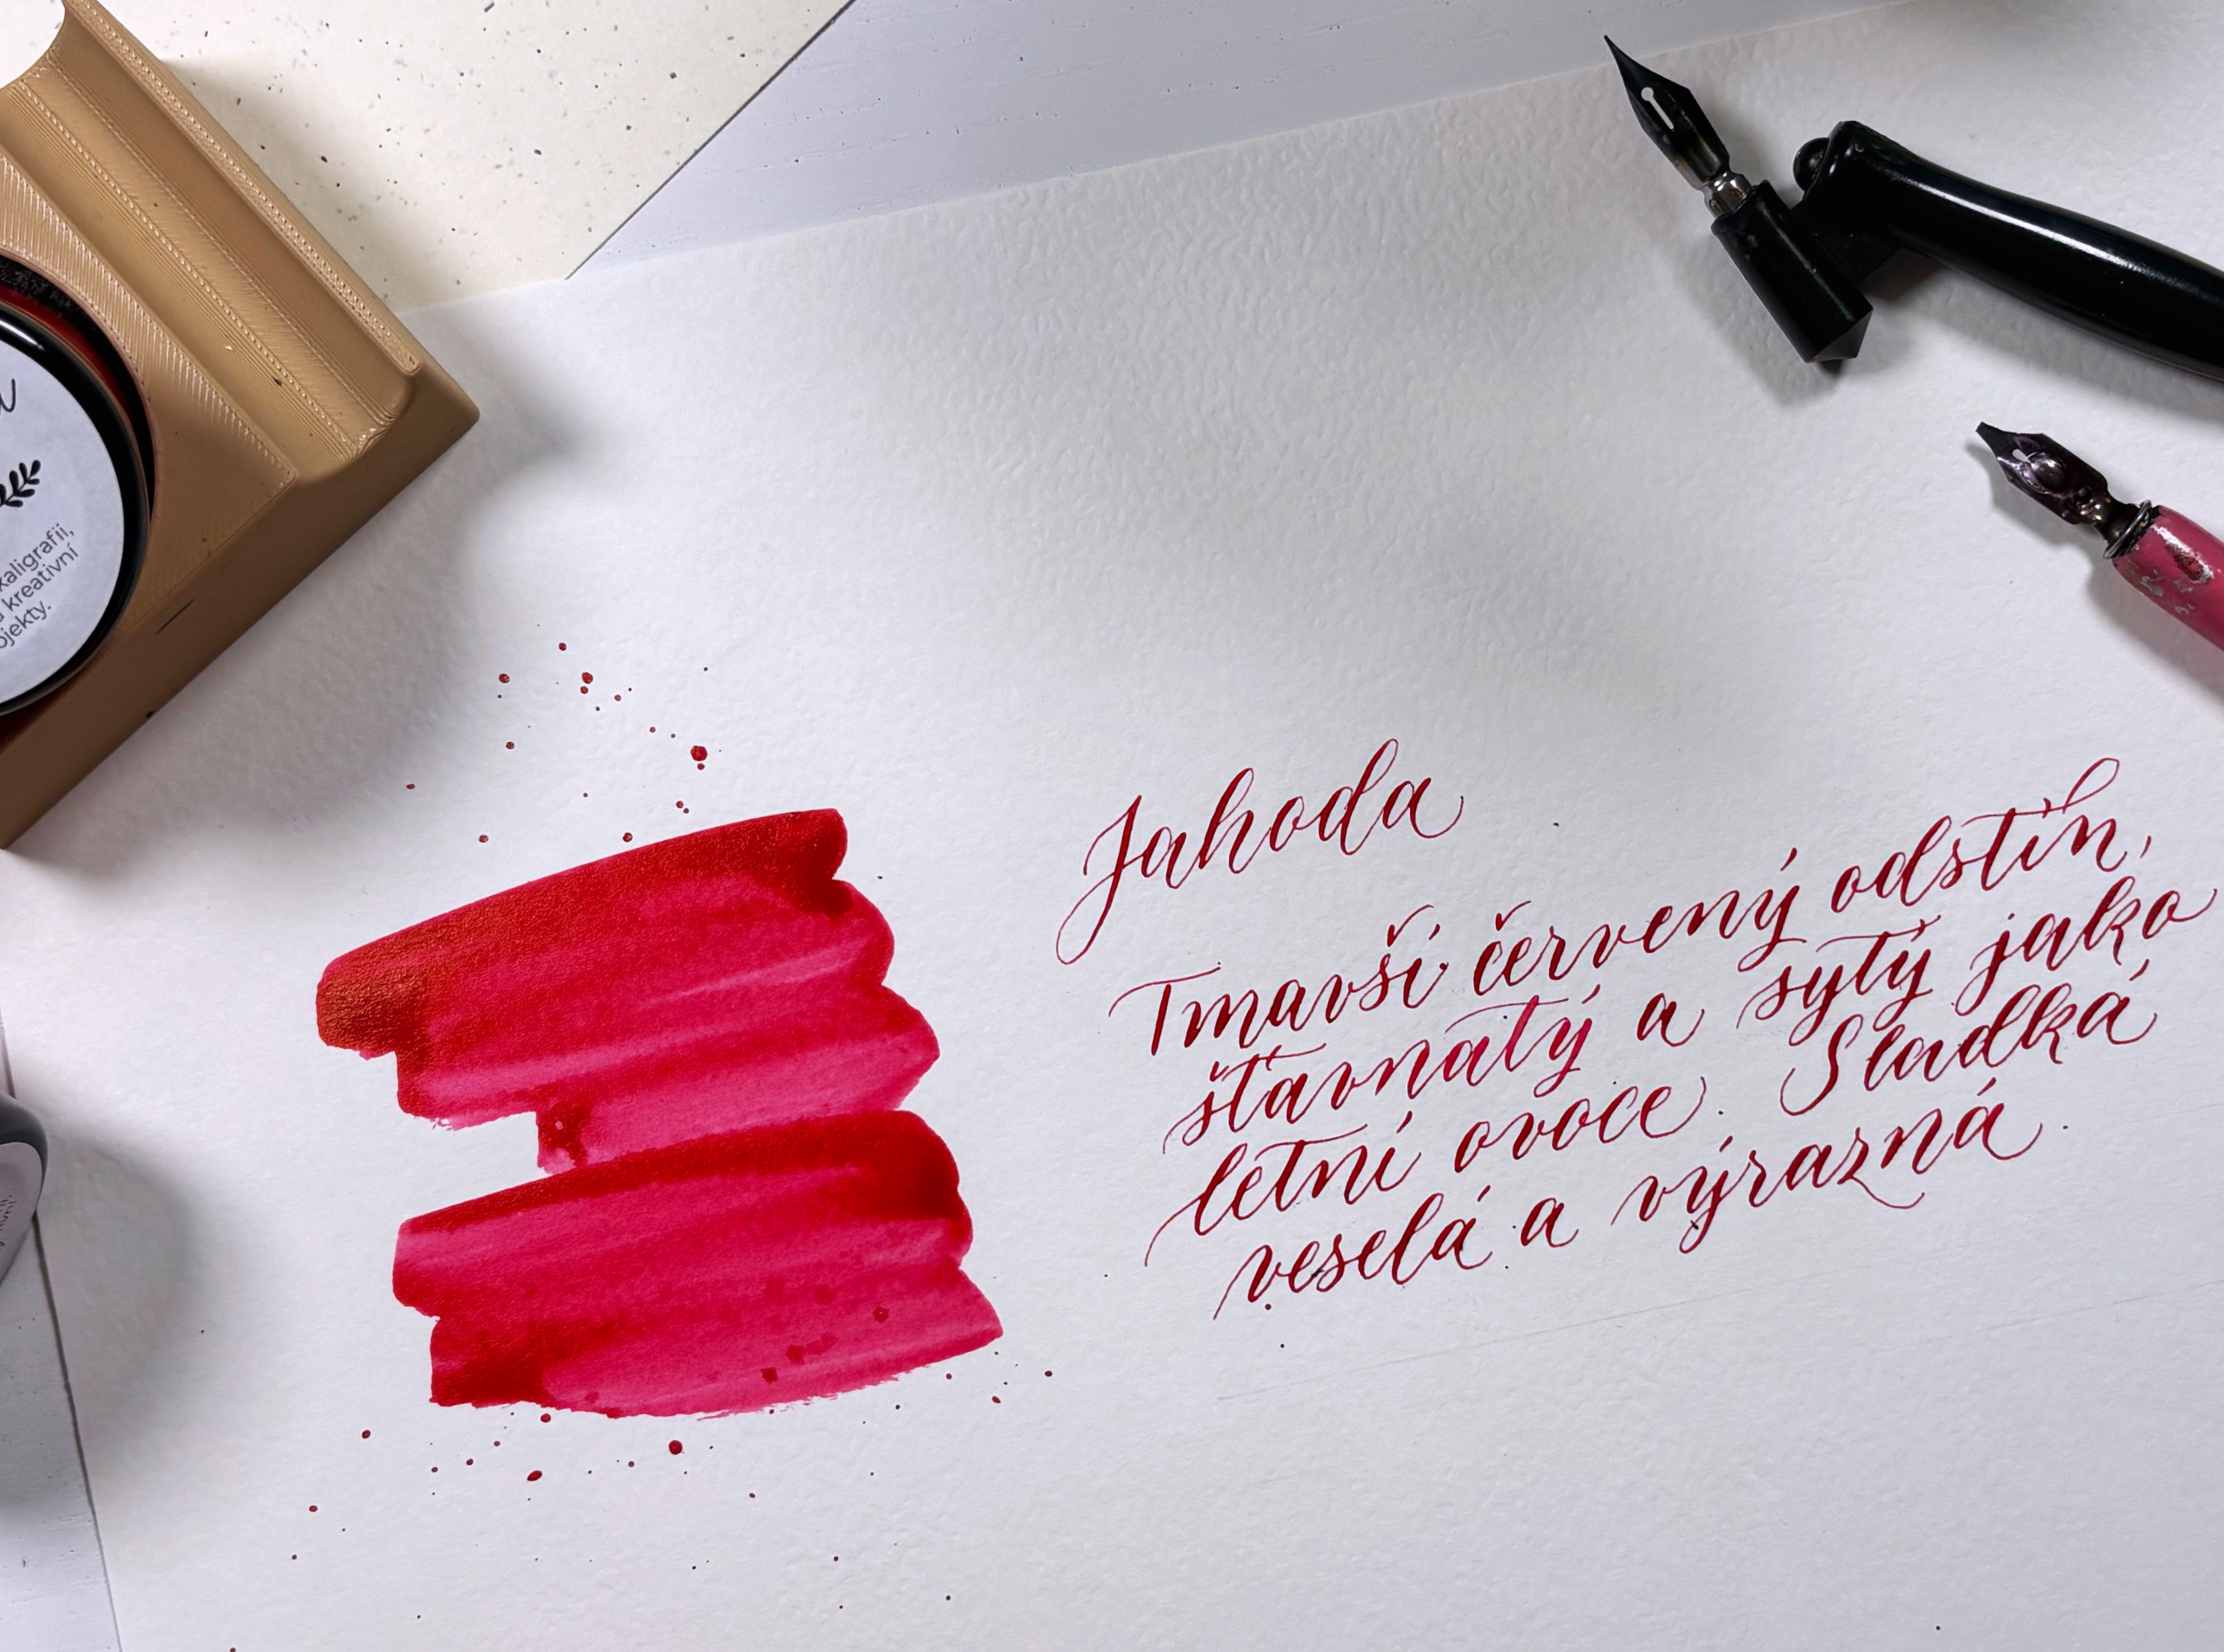 kaligrafii,
kreativní
Jahoda
Tmavší červený odstín,
šťavnatý a sytý jako
letní ovoce. Sladká
veselá a výrazná.